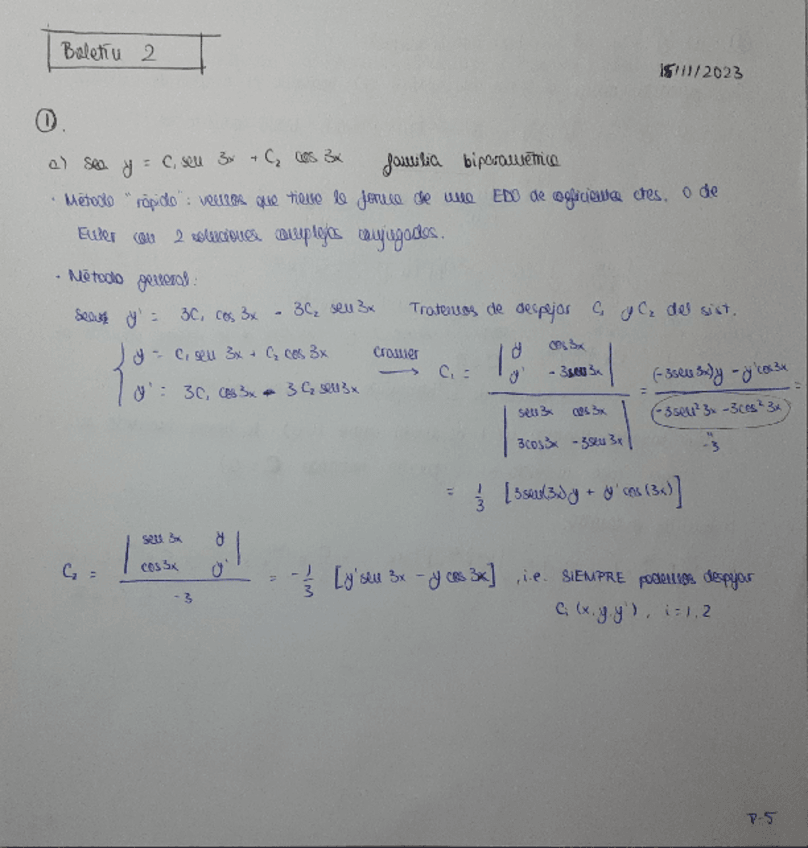 Boletín 2
15/11/2023
①.
a) Sea y = C₁ sen 3x + C₂ cos 3x familia biparamétrica
· Método "rápido": vemos que tiene la forma de una EDO de coeficientes ctes. o de
Euler con 2 soluciones complejas conjugadas.
· Método general:
y' = 3C₁ cos 3x - 3C₂ sen 3x Tratemos de despejar C₁ y C₂ del sist.
{ y = C₁ sen 3x + C₂ cos 3x
y' = 3C₁ cos 3x - 3C₂ sen 3x
Cramer → C₁ = | y cos 3x ; y' -3 sen 3x | / | sen 3x cos 3x ; 3cos 3x -3sen 3x | = (-3sen 3x)y - y' cos 3x / (-3sen² 3x - 3cos² 3x) =
" -3
= 1/3 [3sen(3x)y + y' cos(3x)]
C₂ = | sen 3x y ; cos 3x y' | / -3 = -1/3 [y' sen 3x - y cos 3x] , i.e. SIEMPRE podemos despejar
Cᵢ (x, y, y') , i = 1, 2
P-5